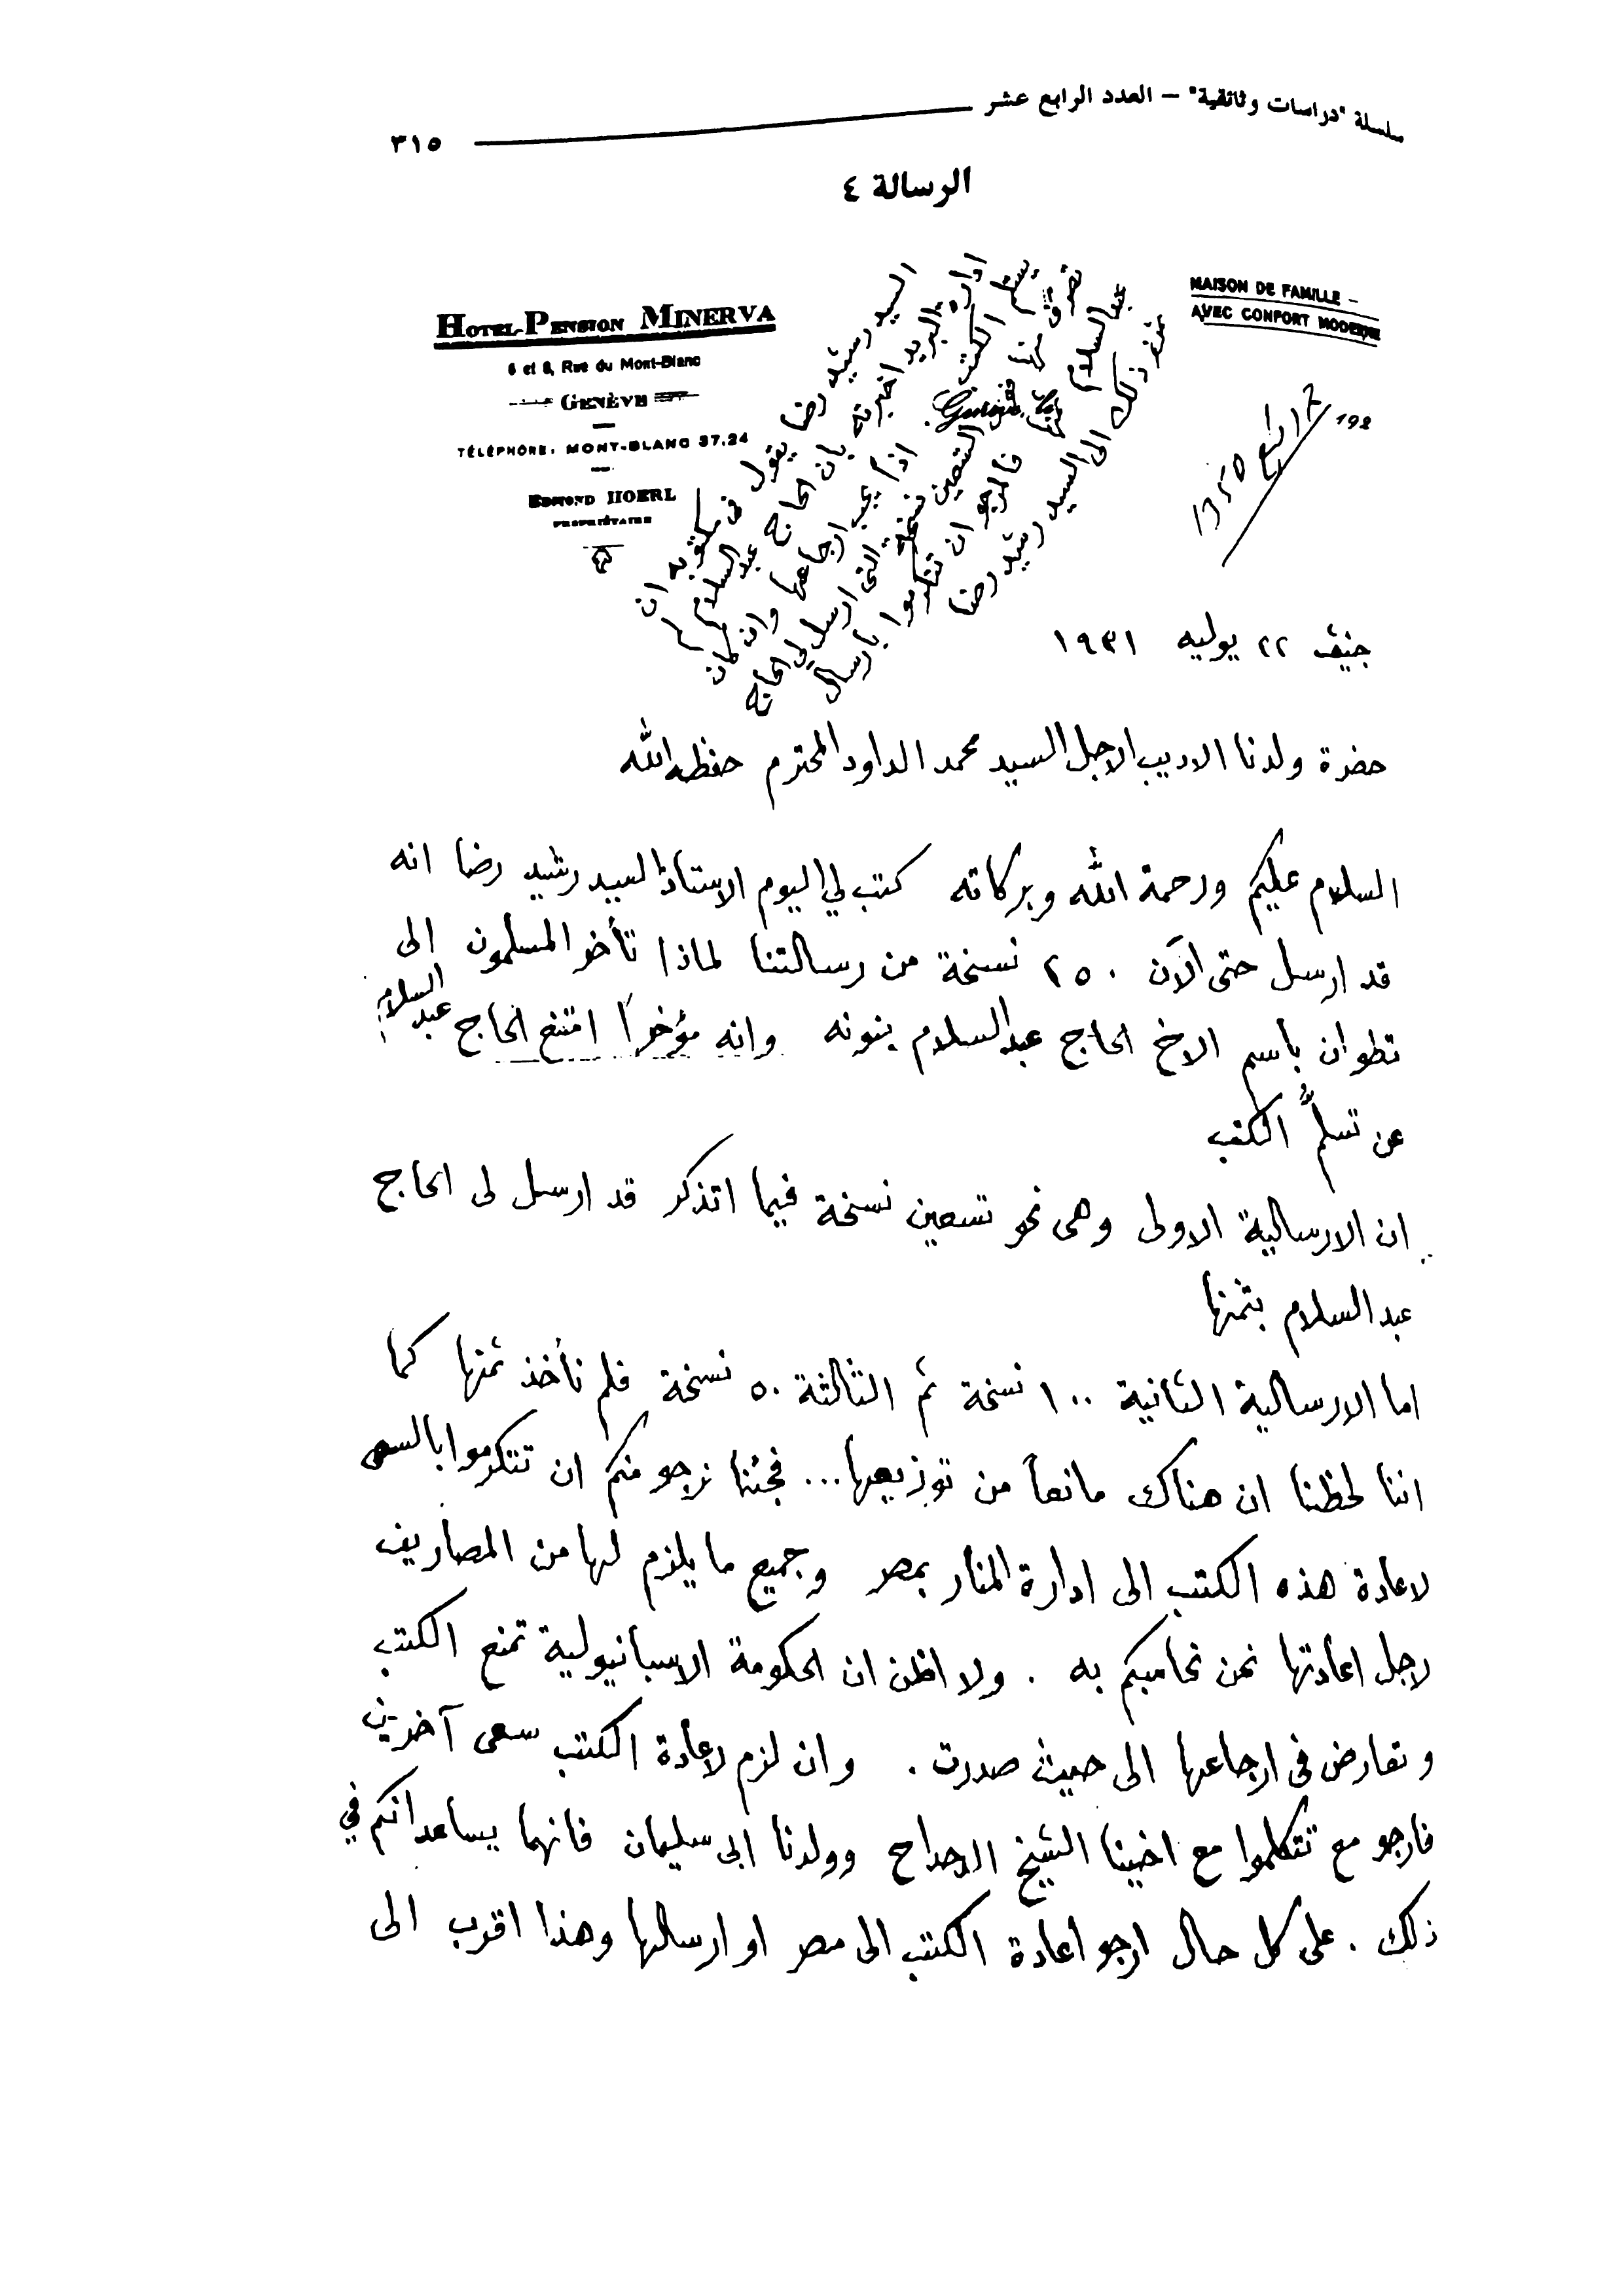 سلسلة "دراسات وثائقية" – العدد الرابع عشر
٣١٥
الرسالة ٤
HOTEL-PENSION MINERVA
6 et 8, Rue du Mont-Blanc
GENÈVE
TÉLÉPHONE, MONT-BLANC 37.24
EDMOND HOERL
PROPRIÉTAIRE
MAISON DE FAMILLE –
AVEC CONFORT MODERNE
192
السيد رشيد رضا يقول في مكتوبه ان
ادارة البريد اخبرته بان الحاج عبد السلام
الكتب اذاً يجب ارجاعها وان كان
تصرف منها التسعين نسخة التي ارسل لي الحاج
عبد السلام فالمرجو ان تتكرموا بارسال
ذلك الى السيد رشيد رضا
جنيف ٢٢ يوليه ١٩٣١
حضرة ولدنا الاديب الاجل السيد محمد الداود المحترم حفظه الله
السلام عليكم ورحمة الله وبركاته كتب لي اليوم الاستاذ السيد رشيد رضا انه
قد ارسل حتى الآن ٢٥٠ نسخة من رسالتنا لماذا تأخر المسلمون الى
تطوان باسم الاخ الحاج عبد السلام بنونه وانه مؤخراً امتنع الحاج عبد السلام
عن تسلّم الكتب
ان الارسالية الاولى وهى نحو تسعين نسخة فيما اتذكر قد ارسل لى الحاج
عبد السلام بثمنها
اما الارسالية الثانية ١٠٠ نسخة ثم الثالثة ٥٠ نسخة فلم نأخذ ثمنها كما
اننا لحظنا ان هناك مانعاً من توزيعها... فجئنا نرجو منكم ان تتكرموا بالسعى
لاعادة هذه الكتب الى ادارة المنار بمصر وجميع ما يلزم لها من المصاريف
لاجل اعادتها نحن نحاسبكم به . ولا اظن ان الحكومة الاسبانيولية تمنع الكتب
وتعارض فى ارجاعها الى حيث صدرت . وان لزم لاعادة الكتب سعى آخرين
فارجو مع تتكلموا مع اخينا الشيخ الدحداح وولدنا ابى سليمان فانهما يساعدانكم في
ذلك . على كل حال ارجو اعادة الكتب الى مصر او ارسالها وهذا اقرب الى